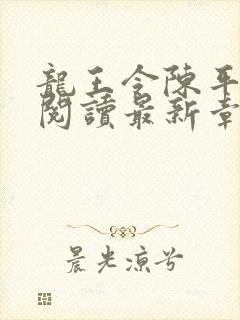 龍王令陳平
閱讀最新章
晨光涼兮